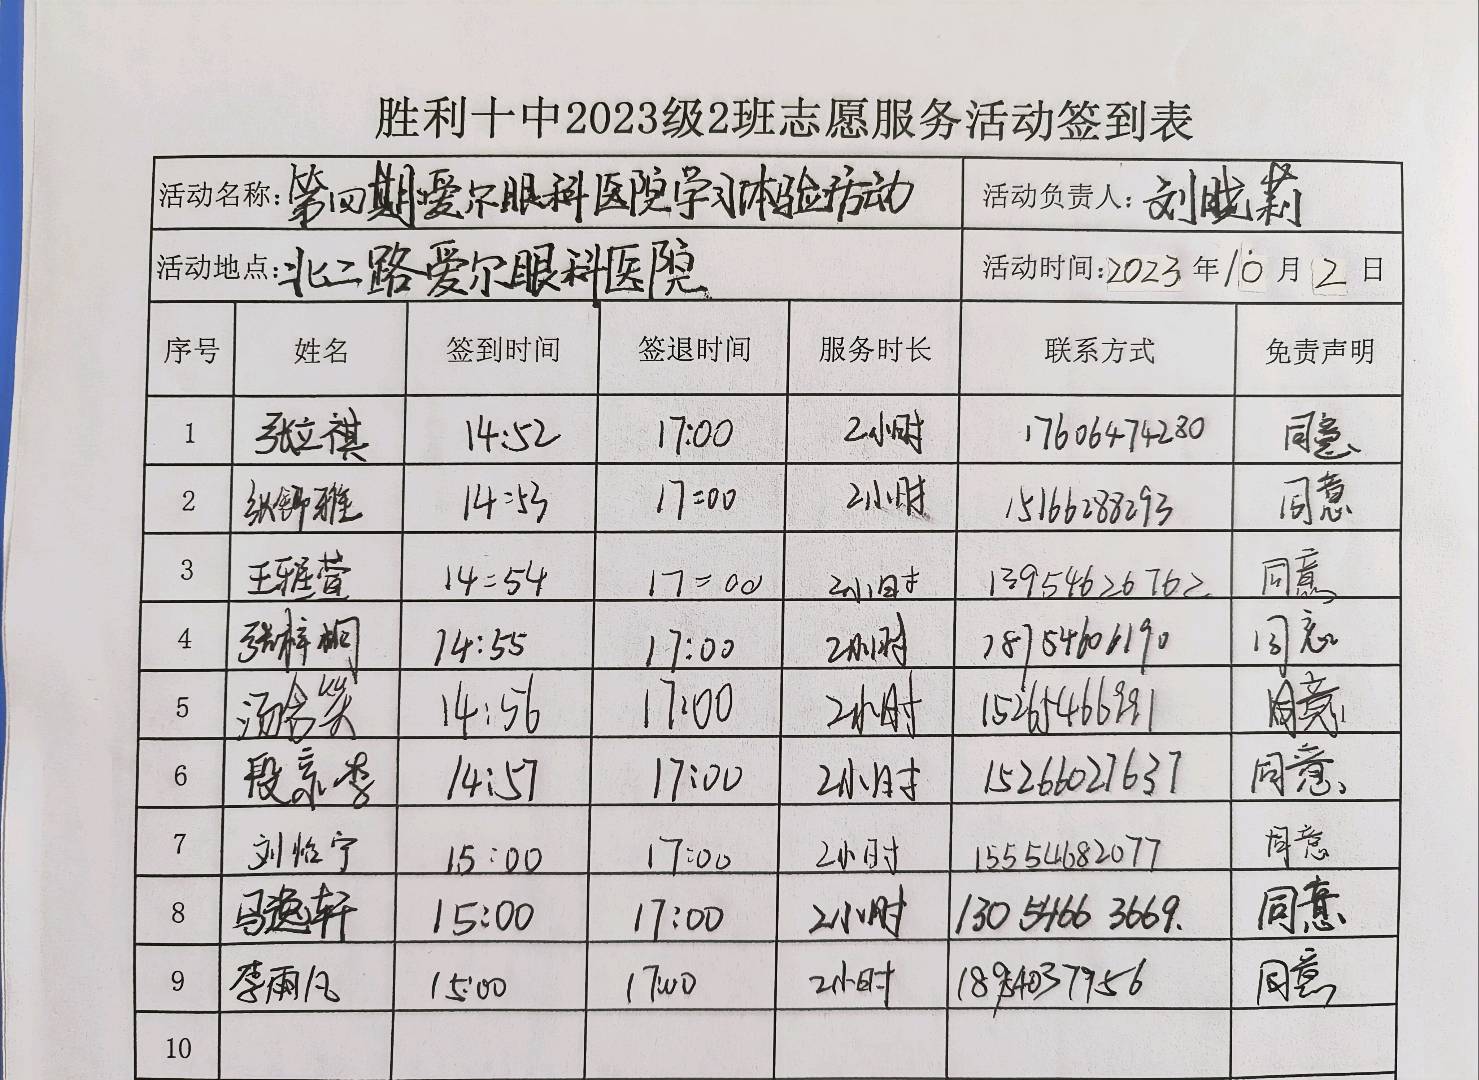 胜利十中2023级2班志愿服务活动签到表
活动名称:第四期爱尔眼科医院学习体验活动 活动负责人:刘晓莉
活动地点:北二路爱尔眼科医院 活动时间:2023年10月2日
序号 姓名 签到时间 签退时间 服务时长 联系方式 免责声明
1 张立祺 14:52 17:00 2小时 17606474280 同意
2 张舒雅 14:53 17:00 2小时 15166288293 同意
3 王雅萱 14:54 17:00 2小时 13954626762 同意
4 张梓桐 14:55 17:00 2小时 18754606190 同意
5 汤含笑 14:56 17:00 2小时 15265466991 同意
6 段京李 14:57 17:00 2小时 15266027637 同意
7 刘怡宁 15:00 17:00 2小时 15554682077 同意
8 马逸轩 15:00 17:00 2小时 13054663669. 同意
9 李雨凡 15:00 17:00 2小时 18954037956 同意
10